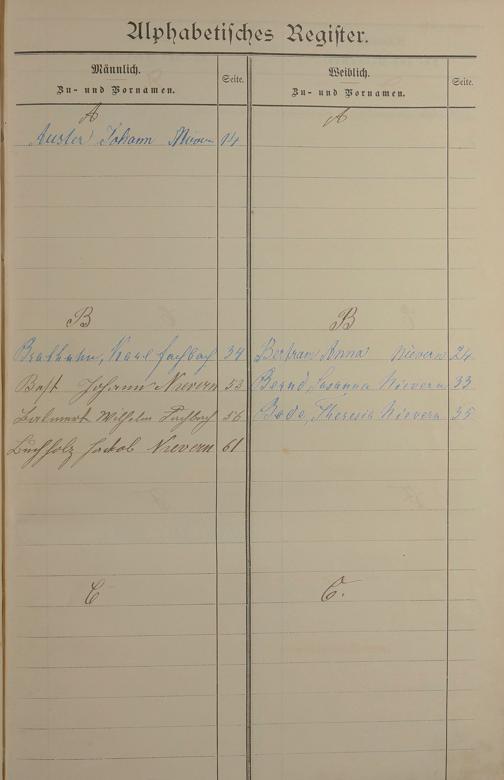 Alphabetisches Register.
Männlich.
Zu- und Vornamen.
Seite.
Weiblich.
Zu- und Vornamen.
Seite.
A
A
Johann Nievern 14
B
B
Karl Fachbach 34
Bertram Anna Nievern 24
Bast Johann Nievern 53
Susanna Nievern 33
Wilhelm Fachbach 56
Bode, Theresia Nievern 35
Buchholz Jakob Nievern 61
C
C.